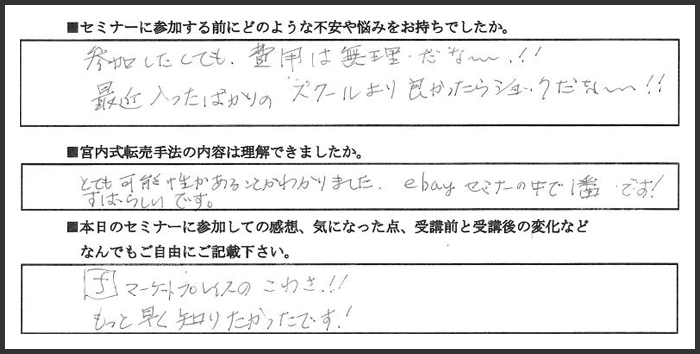 ■セミナーに参加する前にどのような不安や悩みをお持ちでしたか。
参加したくても、費用は無理だな〜!!
最近入ったばかりのスクールより良かったらショックだな〜!!
■宮内式転売手法の内容は理解できましたか。
とても可能性があることがわかりました。ebayセミナーの中で1番です!
すばらしいです。
■本日のセミナーに参加しての感想、気になった点、受講前と受講後の変化など
なんでもご自由にご記載下さい。
f マーケットプレイスのこわさ!!
もっと早く知りたかったです!